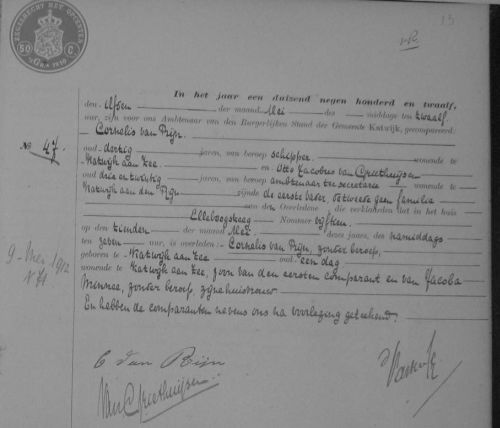 13
ZEGELRECHT MET OPCENTEN
50 C.
Gr. 1910
In het jaar een duizend negen honderd en twaalf,
den elfden der maand Mei des middags ten twaalf
uur, zijn voor ons Ambtenaar van den Burgerlijken Stand der Gemeente Katwijk, gecompareerd:
Cornelis van Rijn,
No. 47.
oud dertig jaren, van beroep schipper wonende te
Katwijk aan Zee en Otto Jacobus van Griethuijsen
oud drie en twintig jaren, van beroep ambtenaar ter secretarie wonende te
Katwijk aan den Rijn zijnde de eerste vader de tweede geen familie
van den Overledene die verklaarden dat in het huis
Elleboogsteeg Nommer vijftien
op den tienden der maand Mei dezes jaars, des namiddags
ten zeven uur, is overleden: Cornelis van Rijn, zonder beroep,
geboren te Katwijk aan Zee oud een dag
wonende te Katwijk aan Zee, zoon van den eersten comparant en van Jacoba
zonder beroep, zijne huisvrouw
En hebben de comparanten nevens ons na voorlezing geteekend.
9 Mei 1912
N 71
C van Rijn
van Griethuijsen